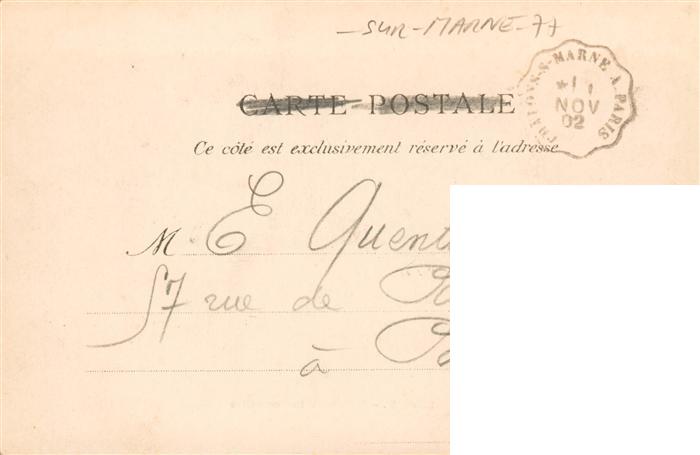 -SUR-MARNE-77
CHALONS-S-MARNE A PARIS
*1 1
NOV
02
CARTE POSTALE
Ce côté est exclusivement réservé à l'adresse
M. E Quent
57 rue de
à